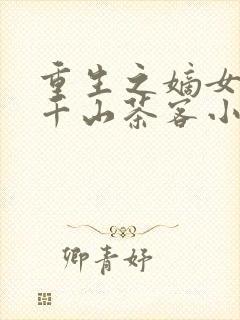 重生之嫡女
千山茶客小
卿青妤